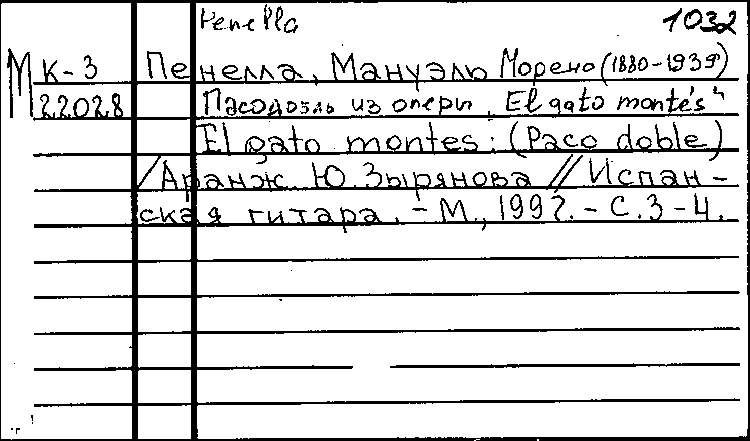 Penella 1032
М К-3 Пенелла, Мануэль Морено (1880-1939)
22028 Пасодобль из оперы „El gato montés"
El gato montes: (Paco doble)
/Аранж. Ю. Зырянова // Испан-
ская гитара. - М., 1997. - С. 3-4.